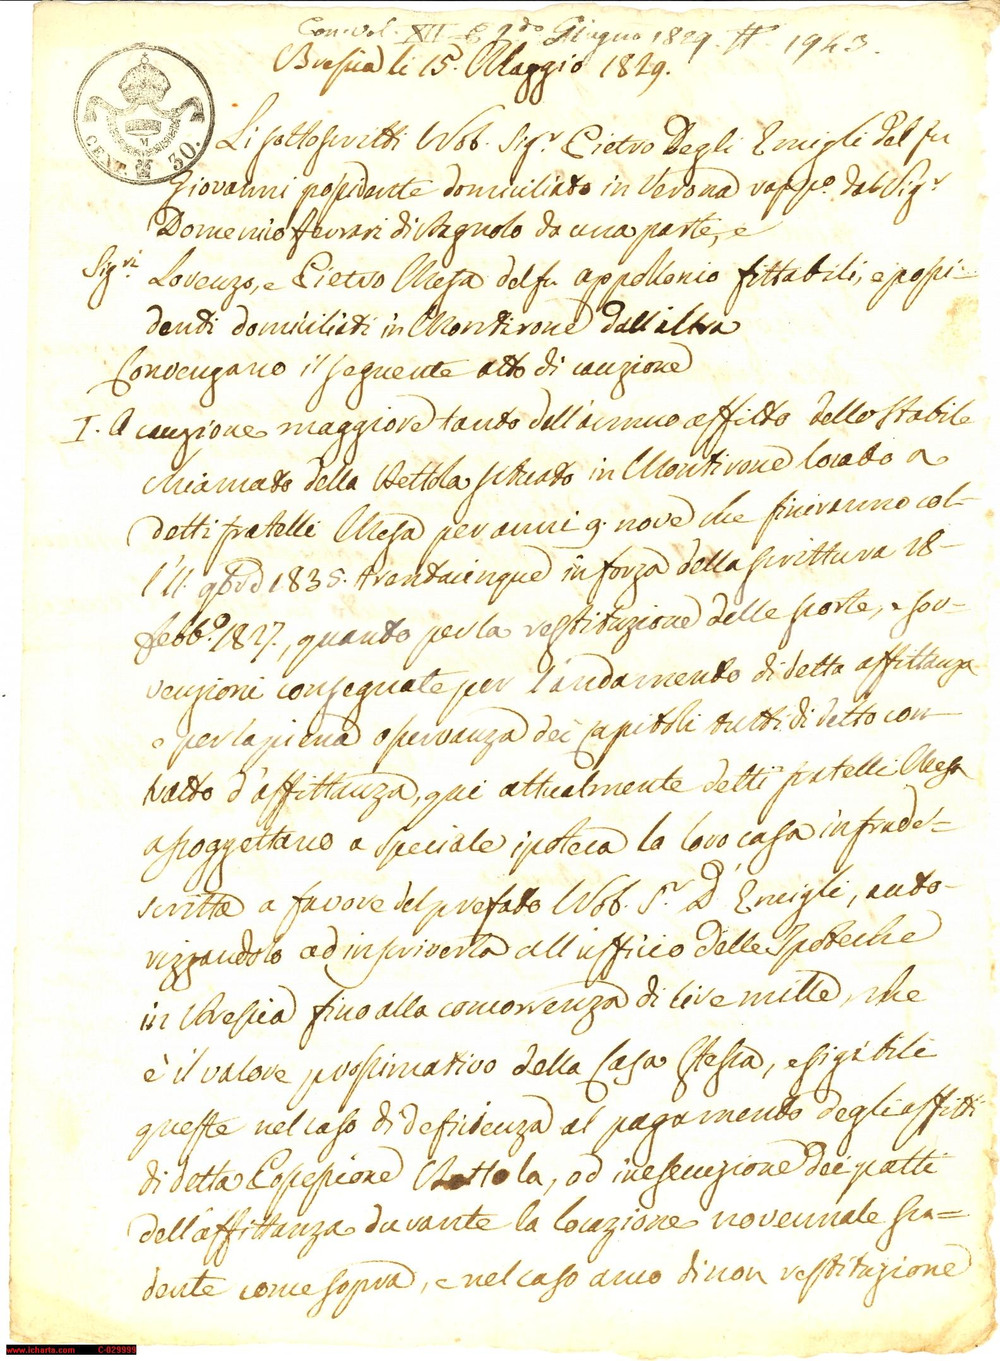 Con. Vol. XII E 2do Giugno 1829 N. 1943.
Brescia li 15. Maggio 1829.
CENT. 30.
Li sottoscritti Nob. Sigr. Pietro Degli Emigli del fu
Giovanni possidente domiciliato in Verona rappo. dal Sigr
Domenico Ferrari di Bagnolo da una parte, e
Sigri Lorenzo, e Pietro Mesa del fu Appollonio fittabili, e possi-
denti domiciliati in Montirone dall'altra
Convengano il seguente atto di cauzione
I. A cauzione maggiore tanto dell'annuo affitto dello stabile
chiamato della Bettola situato in Montirone locato a
detti fratelli Mesa per anni 9. nove che finiranno col-
l'11. 9bre 1835. trentacinque in forza della scrittura 18-
febbo. 1827., quanto per la restituzione delle scorte, e sov-
venzioni consegnate per l'andamento di detta affittanza
e per la piena osservanza dei capitoli tutti di detto con-
tratto d'affittanza, qui attualmente detti fratelli Mesa
assoggettano a speciale ipoteca la loro casa infrade-
scritta a favore del prefato Nob. Sr. D'Emigli, auto-
rizzandolo ad inscriverla all'ufficio delle Ipoteche
in Brescia fino alla concorrenza di lire mille, che
è il valore prossimativo della Casa stessa, esigibili
queste nel caso di deficienza al pagamento degli affitti
di detta Possessione Bettola, od inesecuzione dei patti
dell'affittanza durante la locazione novennale sca-
dente come sopra, e nel caso anco di non restituzione
www.icharta.com C-029999